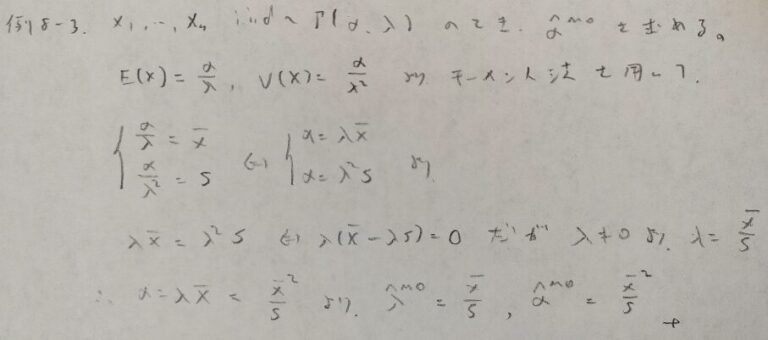 例8-3. X₁, ..., Xₙ i.i.d ~ Γ(α, λ) のとき. α̂^MO を求める。
E(X) = α/λ, V(X) = α/λ² より モーメント法を用いて.
{ α/λ = x̄, α/λ² = S ⇔ { α = λx̄, α = λ²S より
λx̄ = λ²S ⇔ λ(x̄ - λS) = 0 だが λ ≠ 0 より. λ = x̄/S
∴ α = λx̄ = x̄²/S より. λ̂^MO = x̄/S, α̂^MO = x̄²/S